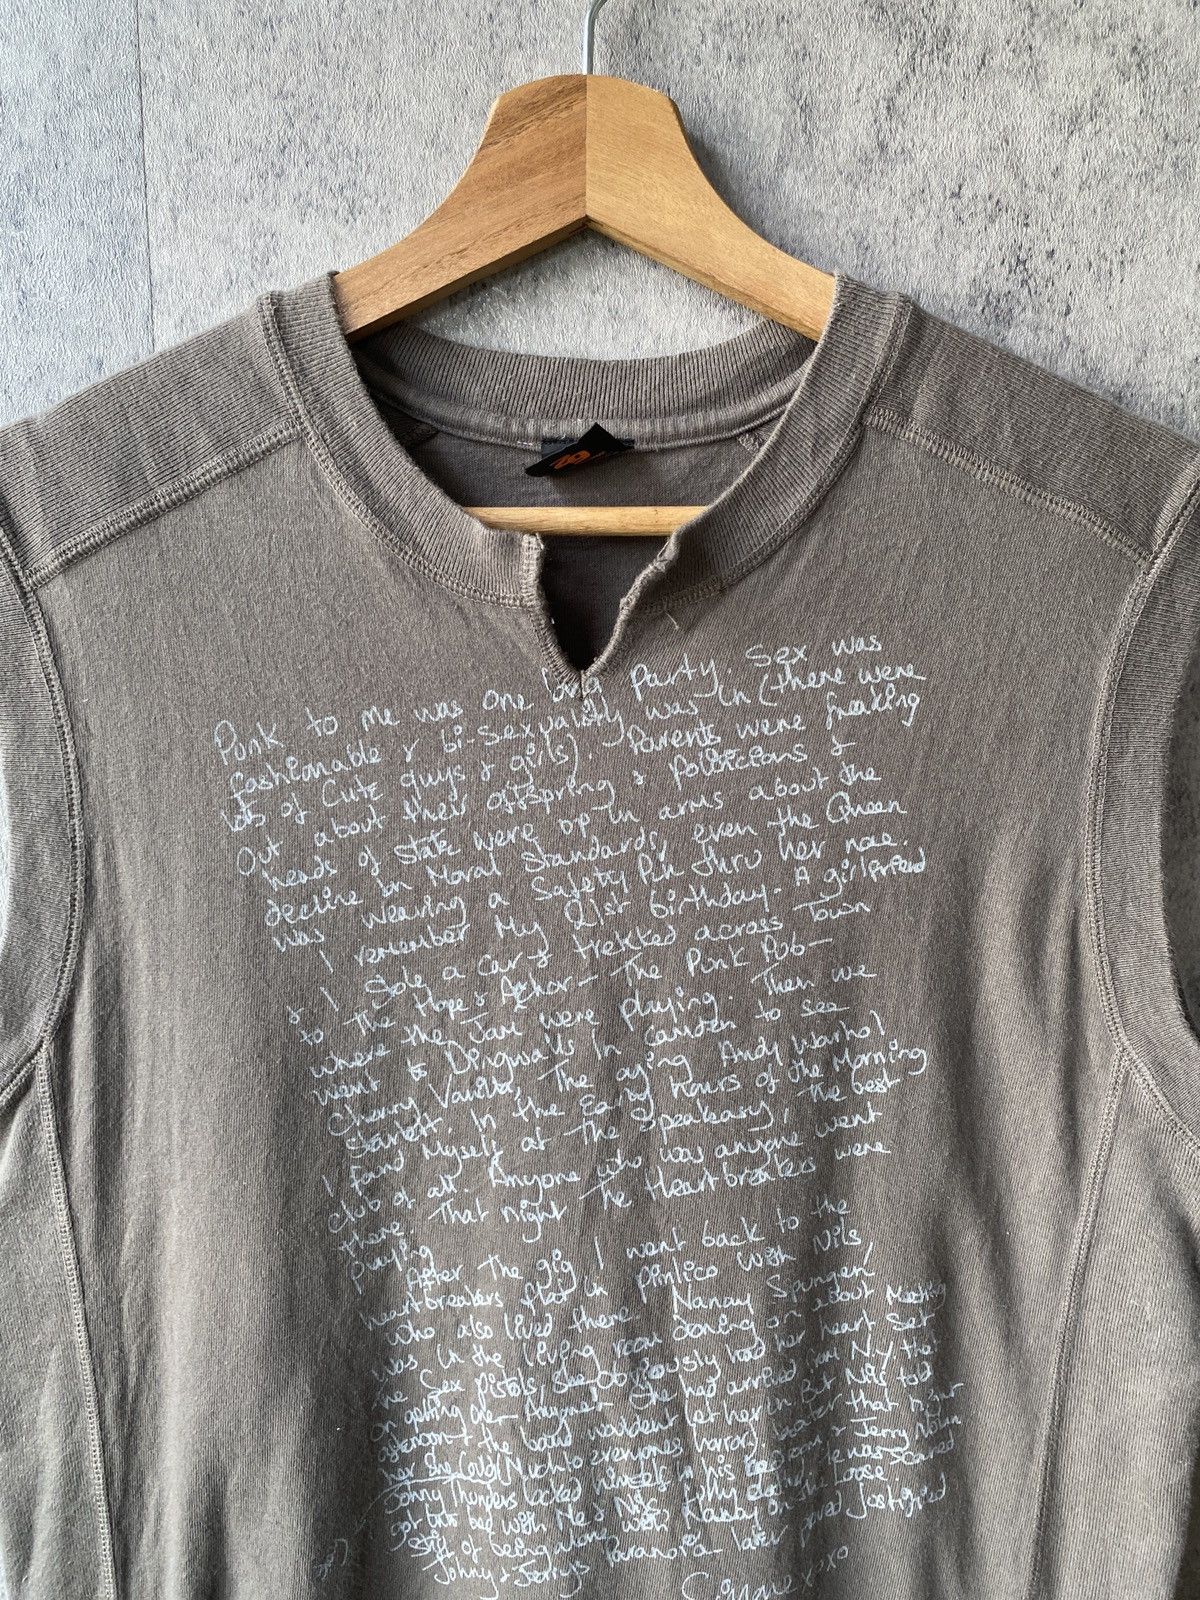 Punk to me was one long Party. Sex was
fashionable & bi-sexuality was in (there were
lots of Cute guys & girls). Parents were freaking
Out about their offspring & Politicians &
heads of state were up in arms about the
decline in Moral Standards, even the Queen
was wearing a Safety Pin thru her nose.
I remember My 21st birthday. A girlfriend
& I stole a car & trekked across Town
to The Hope & Achor - The Punk Pub -
where the Jam were playing. Then we
went to Dingwalls In Camden to see
Cherry Vanilla, The aging Andy Warhol
starlett. In the Early hours of the Morning
I fond Myself at The Speakeasy, The best
club of all. Anyone who was anyone went
there. That night The Heartbreakers were
playing
After The gig I went back to the
heartbreakers flat in Pimlico With Nils,
who also lived there. Nancy Spungen
was in the living room droning on about Meeting
the Sex Pistols, she obviously had her heart set
on getting over Anyone! She had arrived from N.Y that
afternoon & the band wouldent let her in But Nils told
her She Could (Much to everyones horror). Later that night
Johnny Thunders locked himself in his & Jerry Nolan
got into bed with Me & Nils fully clothed. He was scared
stiff of being alone with Nancy on the loose
Johnny & Jerrys Paranoia later proved Justified
xoxo